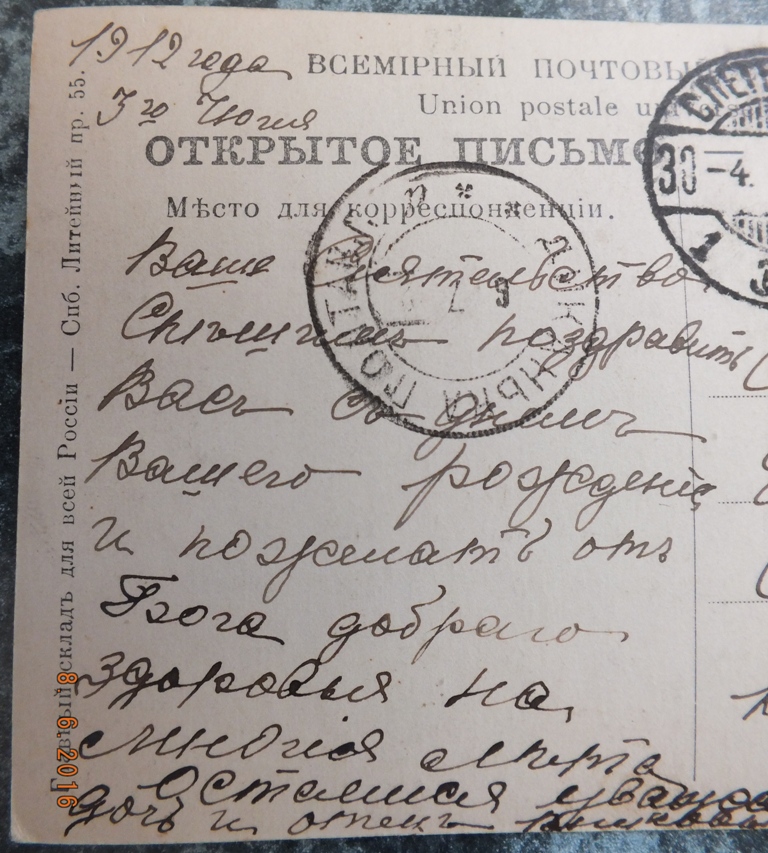 1912 года
3го Июня
ВСЕМІРНЫЙ ПОЧТОВЫ
Union postale un
ОТКРЫТОЕ ПИСЬМО
Мѣсто для корреспонденціи.
СПЕТЕ
30 -4.
1
ПОЧТАМ
Ваше Сіятельство
Спѣшимъ поздравить
Васъ съ днемъ
Вашего рожденія
и пожелать отъ
Бога добраго
здоровья на
многія лѣта
Остаемся
дочь и отецъ
Главный складъ для всей Россіи — Спб. Литейный пр. 55.
8.6.2016